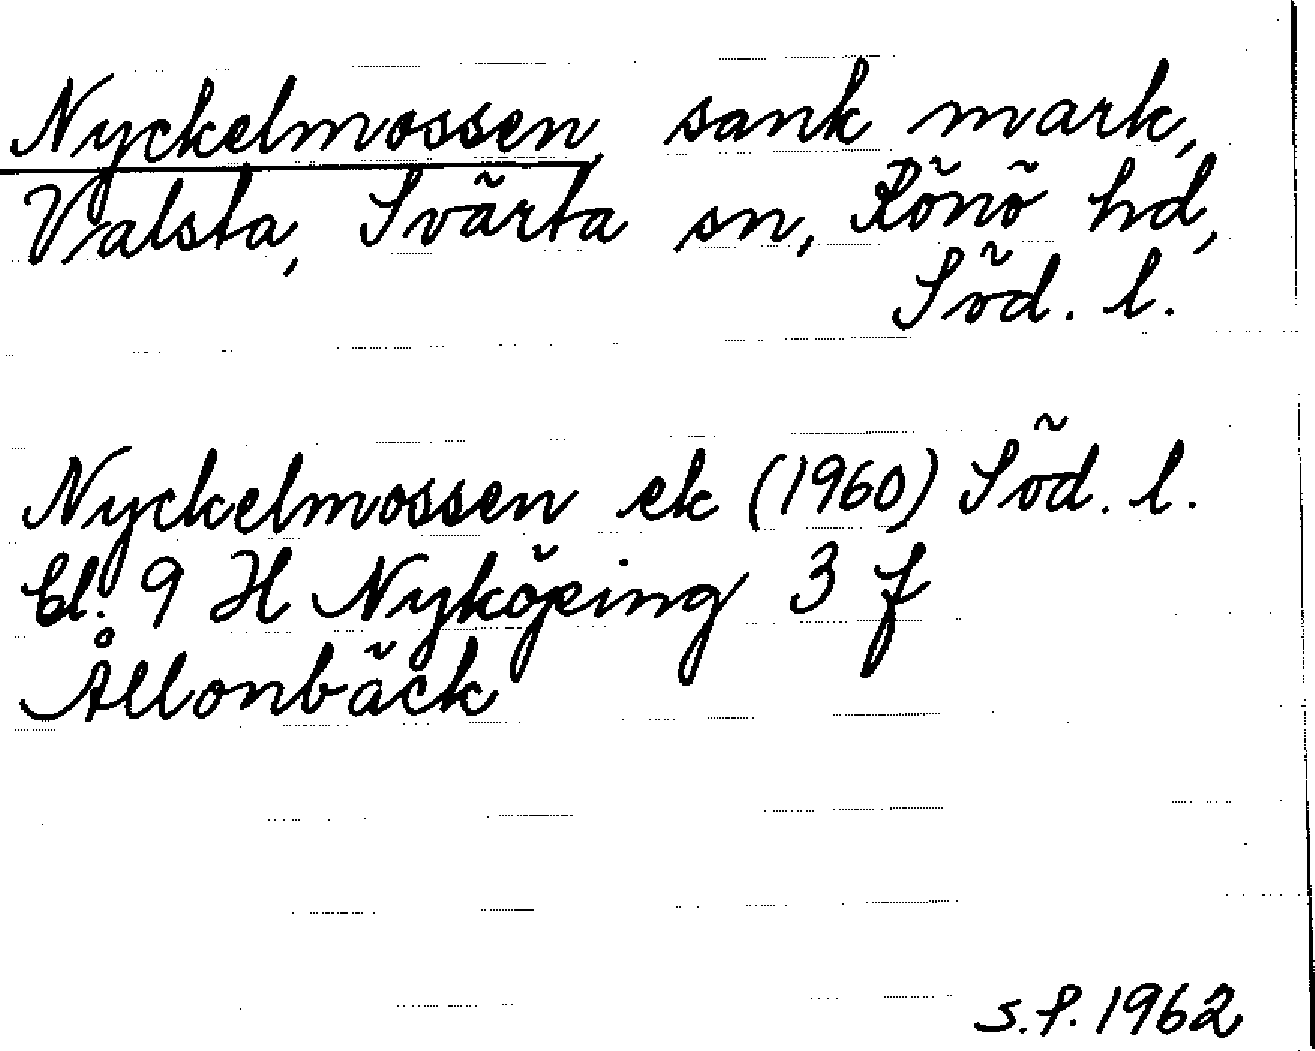 Nyckelmossen, sank mark,
Valsta, Svärta sn, Rönö hd,
Söd. l.
Nyckelmossen ek (1960) Söd. l.
bl. 9 H Nyköping 3 f
Ållonbäck
S.P. 1962